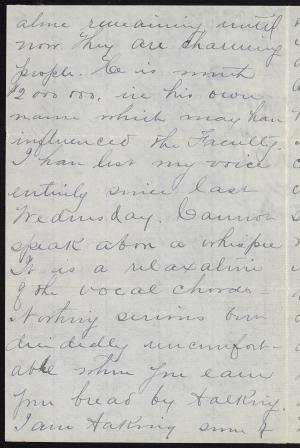 alone remaining until
now. They are charming
people. He is worth
$2000000. in his own
name which may have
influenced the Faculty.
I have lost my voice
entirely since last
Wednesday. Cannot
speak above a whisper
It is a relaxation
of the vocal chords -
Nothing serious but
decidedly uncomfort-
able when you earn
your bread by talking.
I am taking some of